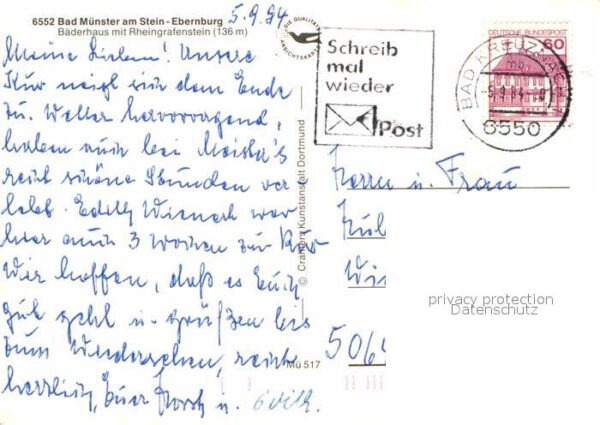 6552 Bad Münster am Stein - Ebernburg
Bäderhaus mit Rheingrafenstein (136 m)
5.9.84
Meine Lieben! Unsere
Kur neigt sich dem Ende
zu. Wetter hervorragend,
haben auch bei
recht schöne Stunden ver
lebt. Edith war
hier auch 3 Wochen zur Kur
Wir hoffen, daß es Euch
gut geht u. grüßen bis
zum Wiedersehen, recht
herzlich, Euer Horst u.
DIE QUALITÄTS
ANSICHTSKARTE
Schreib
mal
wieder
Post
DEUTSCHE BUNDESPOST
60
BAD KREUZNACH
-5.9.84
6550
© Cramers Kunstanstalt Dortmund
Mü 517
Herrn u. Frau
506
privacy protection
Datenschutz